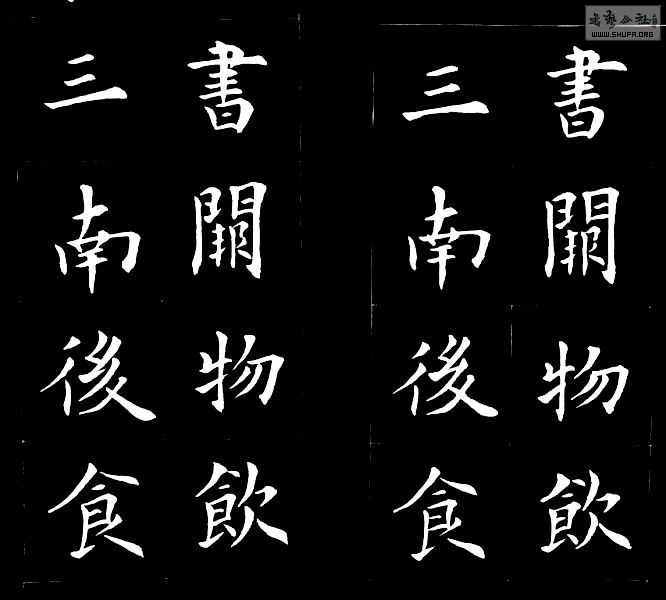 書藝公社
WWW.SHUFA.ORG
書物飲
三南後食
書物飲
三南後食